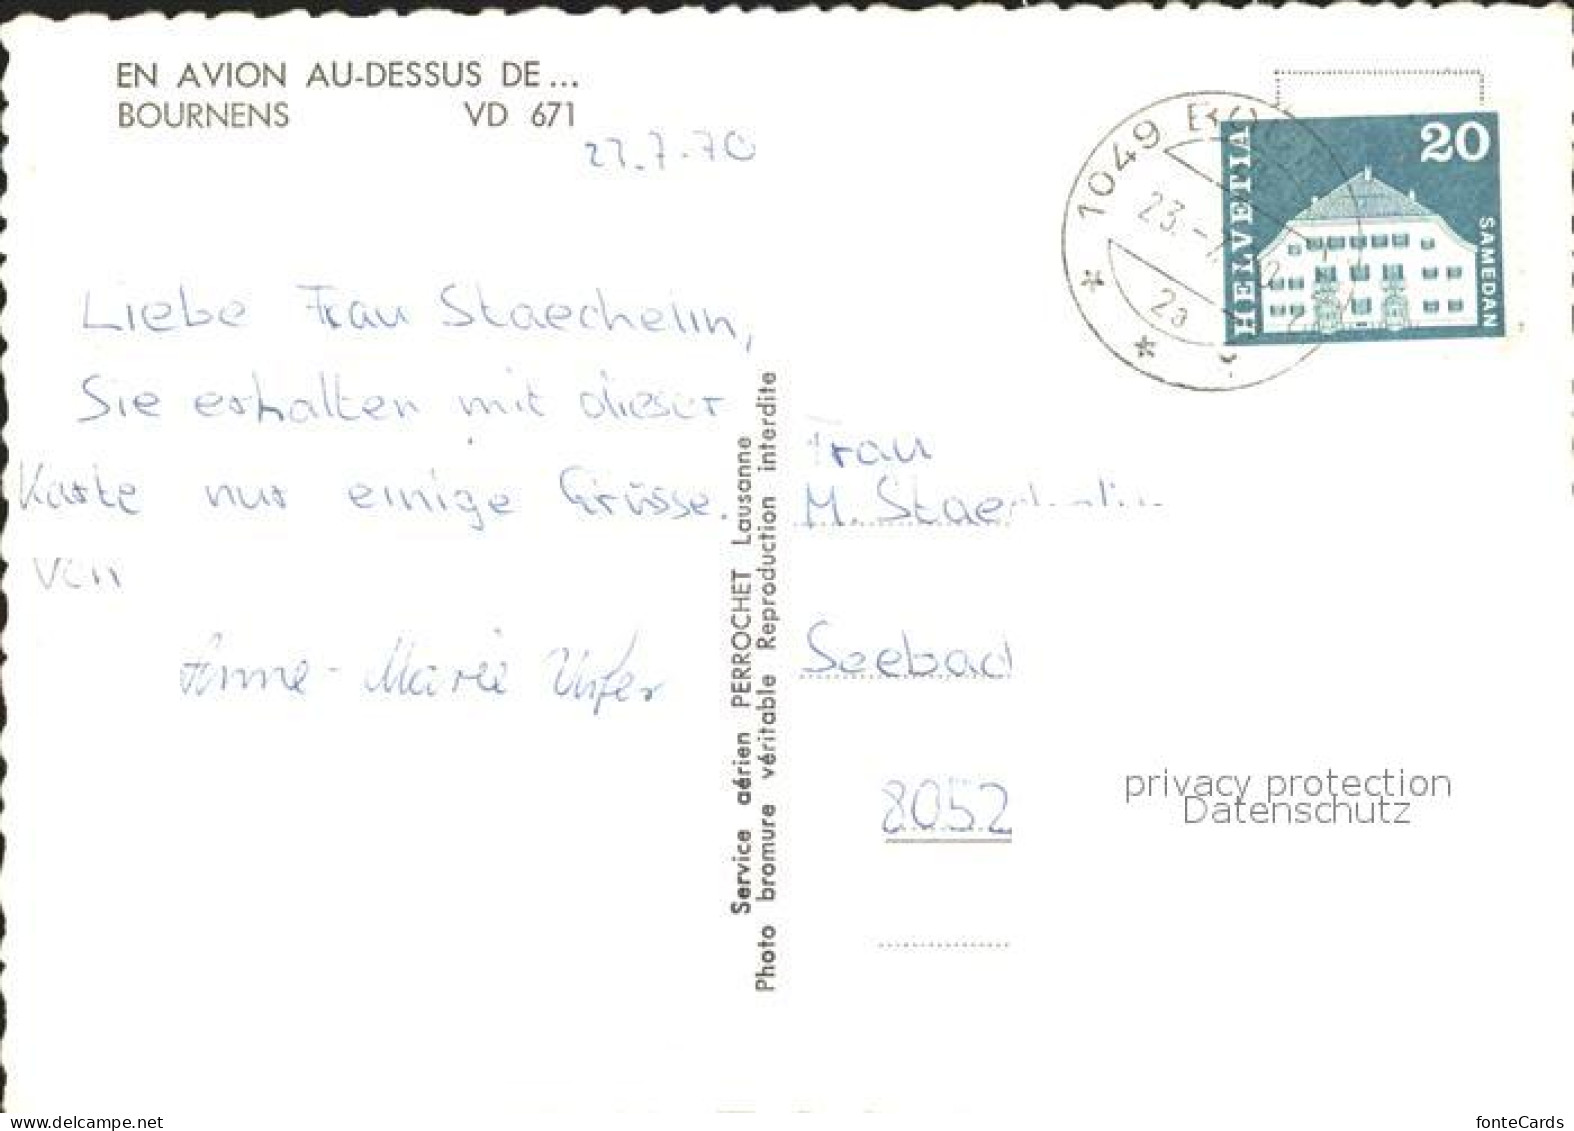 EN AVION AU-DESSUS DE...
BOURNENS VD 671
27.7.70
1049
23.
20
HELVETIA
SAMEDAN
Liebe Frau Staechelin,
Sie erhalten mit dieser
Karte nur einige Grüsse.
von
Anne-Marie Urfer
Service aérien PERROCHET Lausanne
Photo bromure véritable Reproduction interdite
Frau
M. Staechelin
Seebach
8052
privacy protection
Datenschutz
www.ansichtskartenversand.com
fonteCards